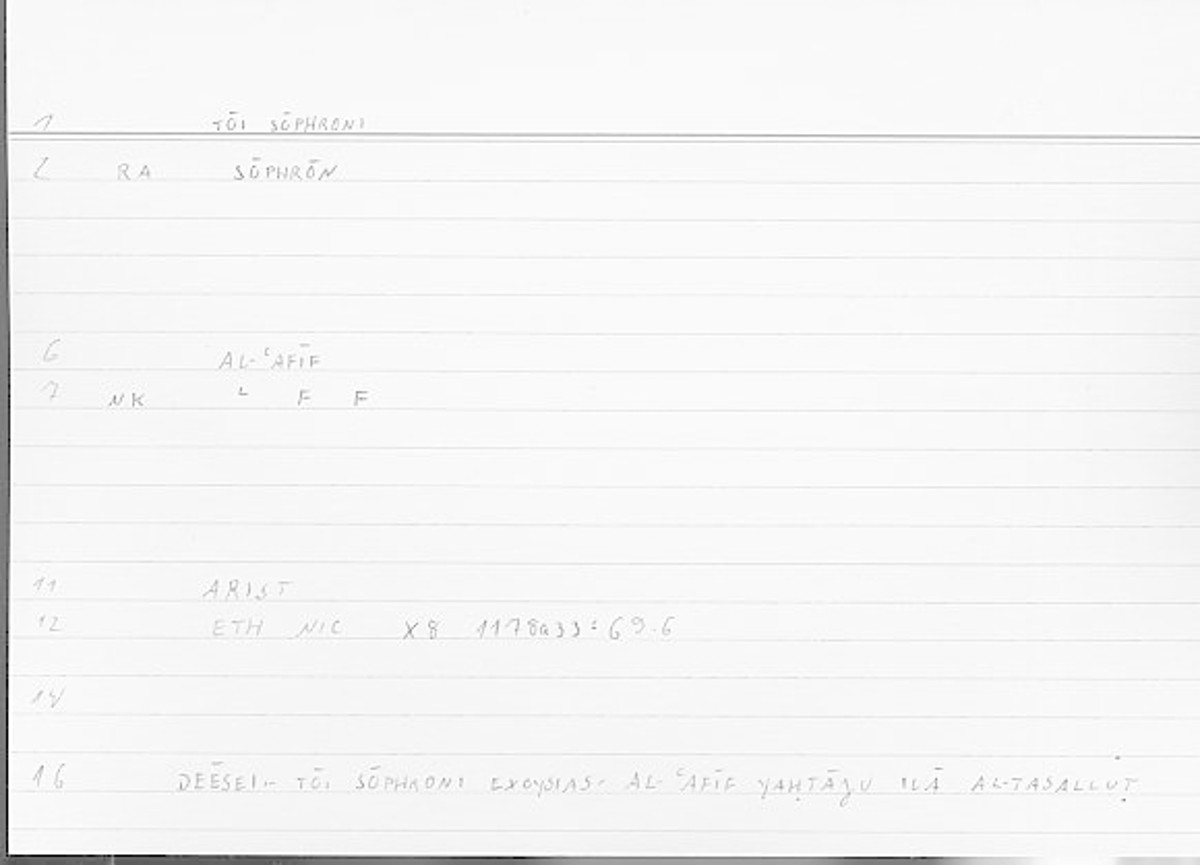 1 TŌI SŌPHRONI
2 RA SŌPHRŌN
6 AL-ʿAFĪF
7 NK ʿ F F
11 ARIST
12 ETH NIC X8 1178a33:69.6
14
16 DEĒSEI-- TŌI SŌPHRONI EXOYSIAS- AL-ʿAFĪF YAḤTĀǦU ILĀ AL-TASALLUṬ